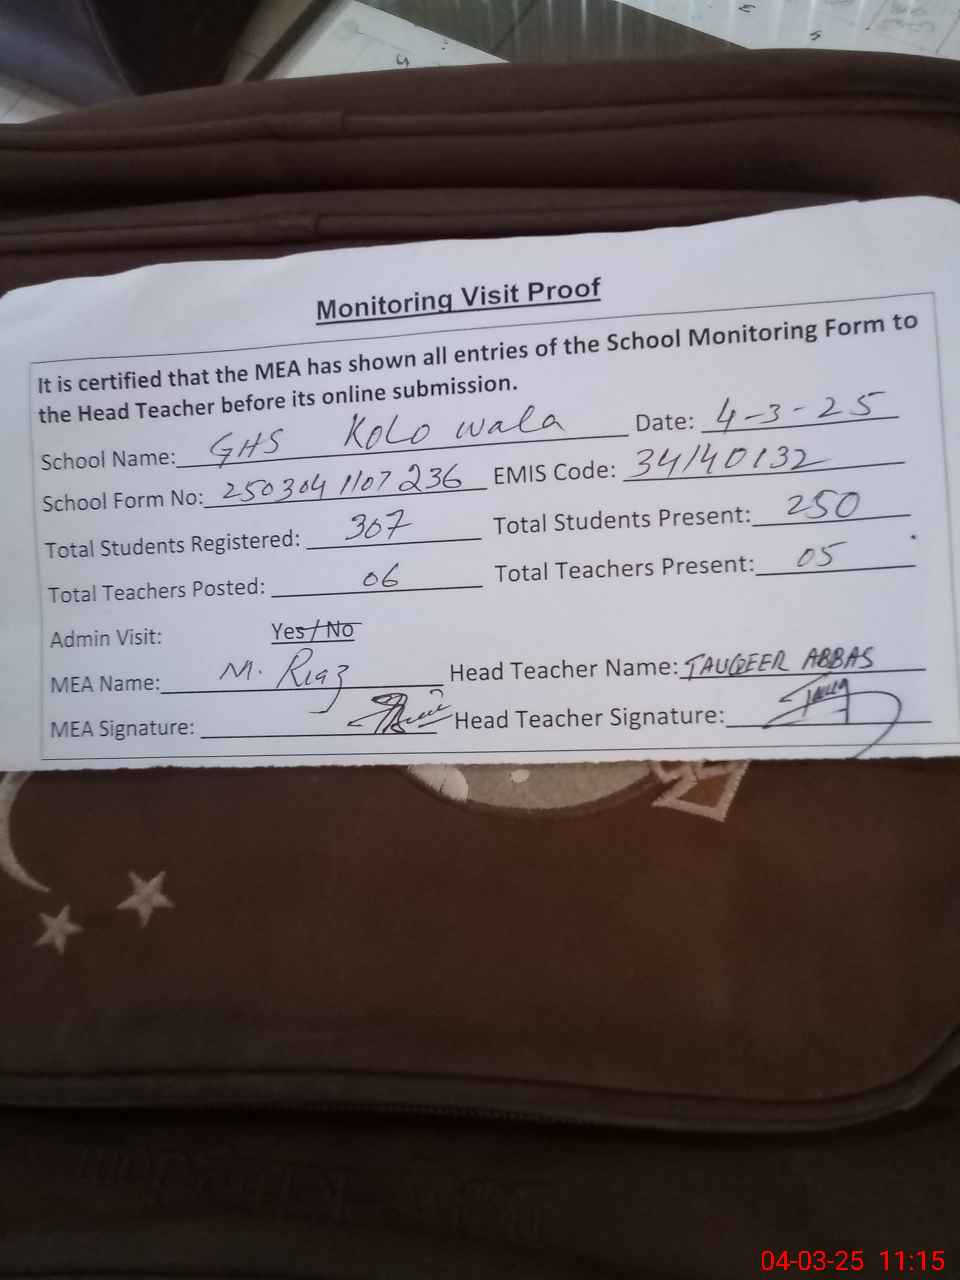 Monitoring Visit Proof
It is certified that the MEA has shown all entries of the School Monitoring Form to
the Head Teacher before its online submission.
School Name: GHS KoLo wala Date: 4-3-25
School Form No: 250304 1107 236 EMIS Code: 34140132
Total Students Registered: 307 Total Students Present: 250
Total Teachers Posted: 06 Total Teachers Present: 05
Admin Visit: Yes / No
MEA Name: M. Riaz Head Teacher Name: TAUQEER ABBAS
MEA Signature: Head Teacher Signature:
04-03-25 11:15